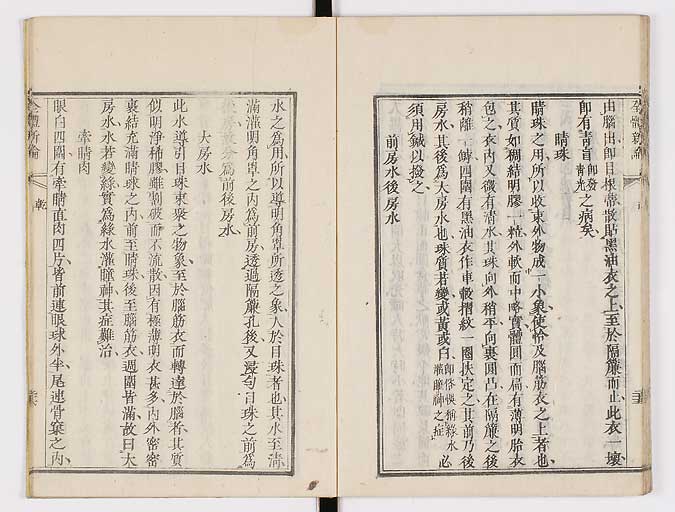 由腦出卽目根蒂散貼黑油衣之上至於隔簾而止此衣一壞
卽有靑盲卽發靑光之病矣
睛珠
睛珠之用所以收束外物成一小象使恰及腦筋衣之上者也
其質如糊結明膠一粒外軟而中略實體圓而扁有薄明胎衣
包之衣內又微有淸水其珠向外稍平向裏圓凸在隔簾之後
稍離一線四圍有黑油衣作車轂摺紋一圈扶定之其前乃後
房水其後爲大房水也珠質若變或黃或白卽俗悞稱綠水灌瞳神之症必
須用鍼以撥之
前房水後房水
水之爲用所以導明角罩所透之象入於目珠者也其水至淸
滿灌明角罩之內爲前房透過隔簾孔後又浸勻目珠之前爲
爲前後房水
大房水
此水導引目珠束聚之物象至於腦筋衣而轉達於腦者其質
似明淨稀膠雖割破而不流散因有極薄明衣甚多內外密密
裏結充滿睛球之內前至睛珠後至腦筋衣週圍皆滿故曰大
房水水若變綠實爲綠水灌瞳神其症難治
牽睛肉
眼白四圍有牽睛直肉四片皆前連眼球外半尾連骨窠之內
全體新論
乾